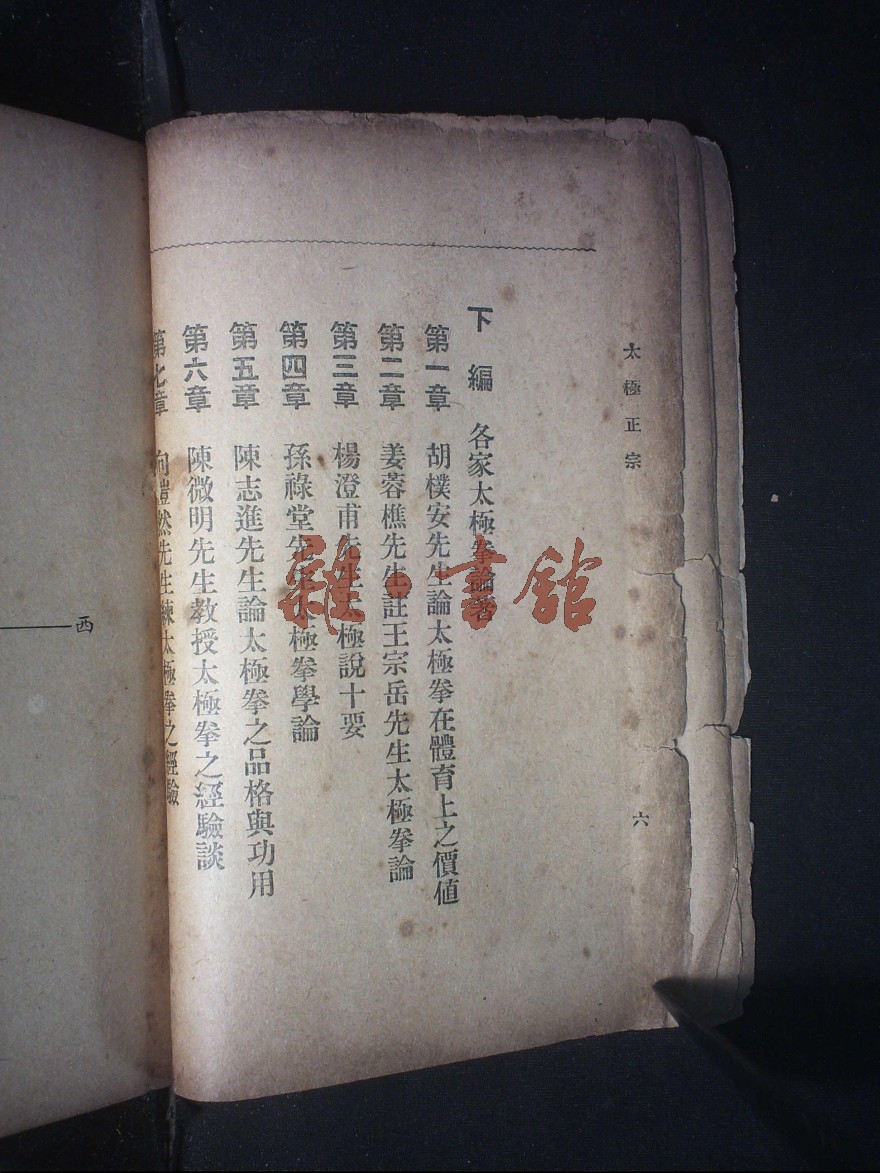 太極正宗
六
下編　各家太極拳論著
第一章　胡樸安先生論太極拳在體育上之價値
第二章　姜蓉樵先生註王宗岳先生太極拳論
第三章　楊澄甫先生太極說十要
第四章　孫祿堂先生太極拳學論
第五章　陳志進先生論太極拳之品格與功用
第六章　陳微明先生教授太極拳之經驗談
第七章　向愷然先生練太極拳之經驗
西
雜·書館